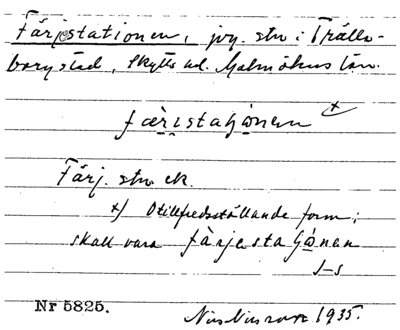 Färjestationen, jvg. stn i Trälle-
borgs stad, Skytts hd. Malmöhus län.
færistaʃɷnen x
Färj. stn ck.
x) Otillfredsställande form;
skall vara færjestaʃɷnen
J-s
Nr 5825.
1935.